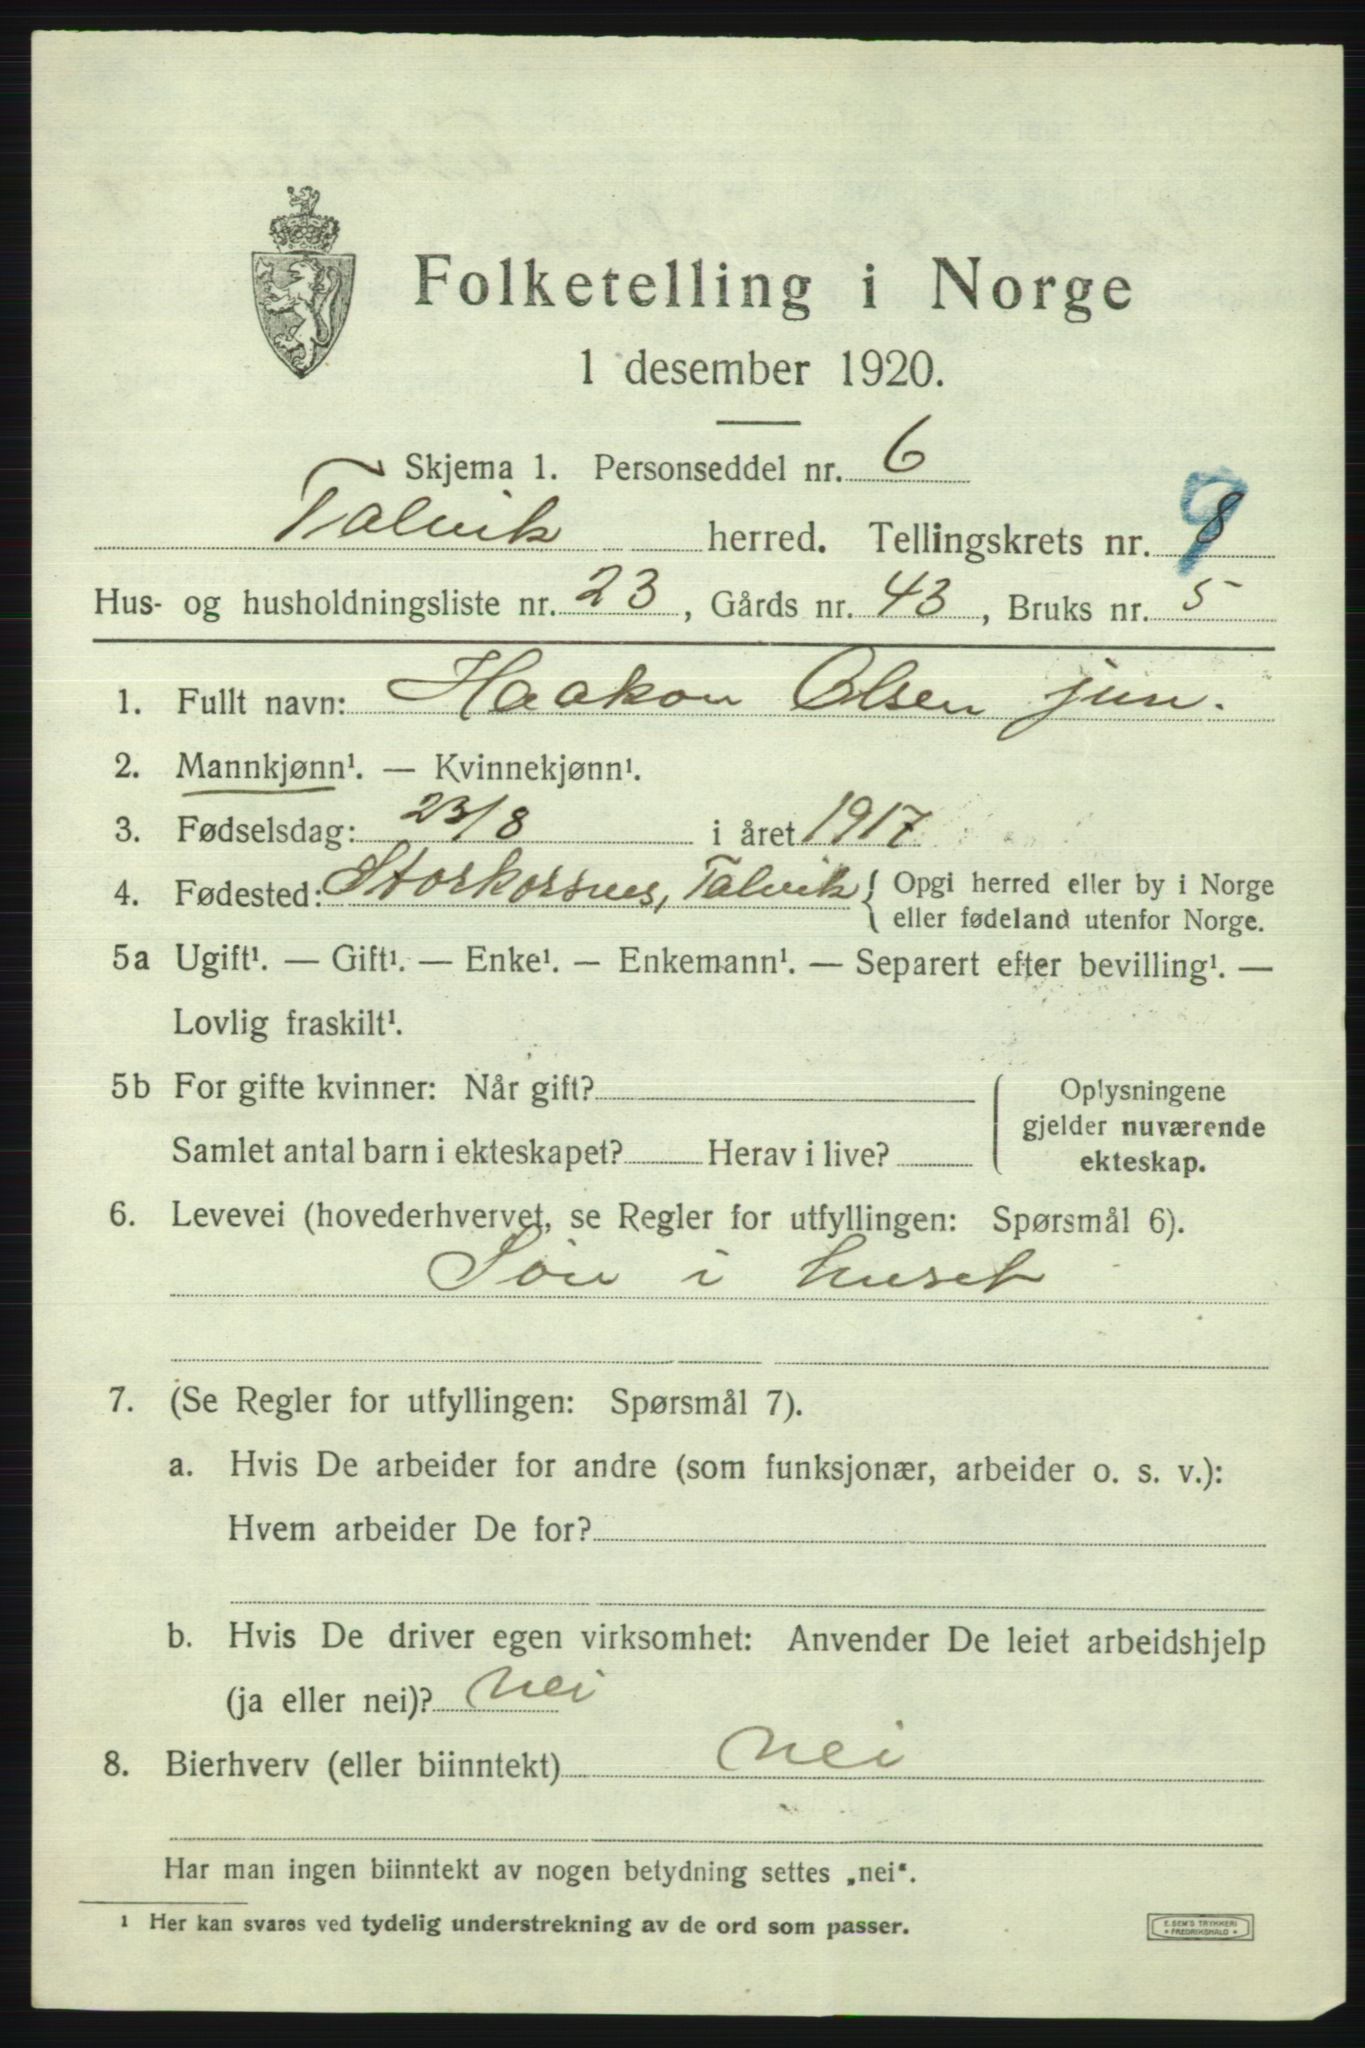 Folketelling i Norge
1 desember 1920.
Skjema 1. Personseddel nr. 6
Talvik herred. Tellingskrets nr. 8 9
Hus- og husholdningsliste nr. 23, Gårds nr. 43, Bruks nr. 5
1. Fullt navn: Haakon Olsen jun.
2. Mannkjønn¹. — Kvinnekjønn¹.
3. Fødselsdag: 23/8 i året 1917
4. Fødested: Storkorsnes, Talvik { Opgi herred eller by i Norge
eller fødeland utenfor Norge.
5a Ugift¹. — Gift¹. — Enke¹. — Enkemann¹. — Separert efter bevilling¹. —
Lovlig fraskilt¹.
5b For gifte kvinner: Når gift?
Samlet antal barn i ekteskapet? Herav i live?
Oplysningene
gjelder nuværende
ekteskap.
6. Levevei (hovederhvervet, se Regler for utfyllingen: Spørsmål 6).
Søn i huset
7. (Se Regler for utfyllingen: Spørsmål 7).
a. Hvis De arbeider for andre (som funksjonær, arbeider o. s. v.):
Hvem arbeider De for?
b. Hvis De driver egen virksomhet: Anvender De leiet arbeidshjelp
(ja eller nei)? nei
8. Bierhverv (eller biinntekt) nei
Har man ingen biinntekt av nogen betydning settes „nei“.
1 Her kan svares ved tydelig understrekning av de ord som passer.
E. SEM'S TRYKKERI
* FREDRIKSHALD *